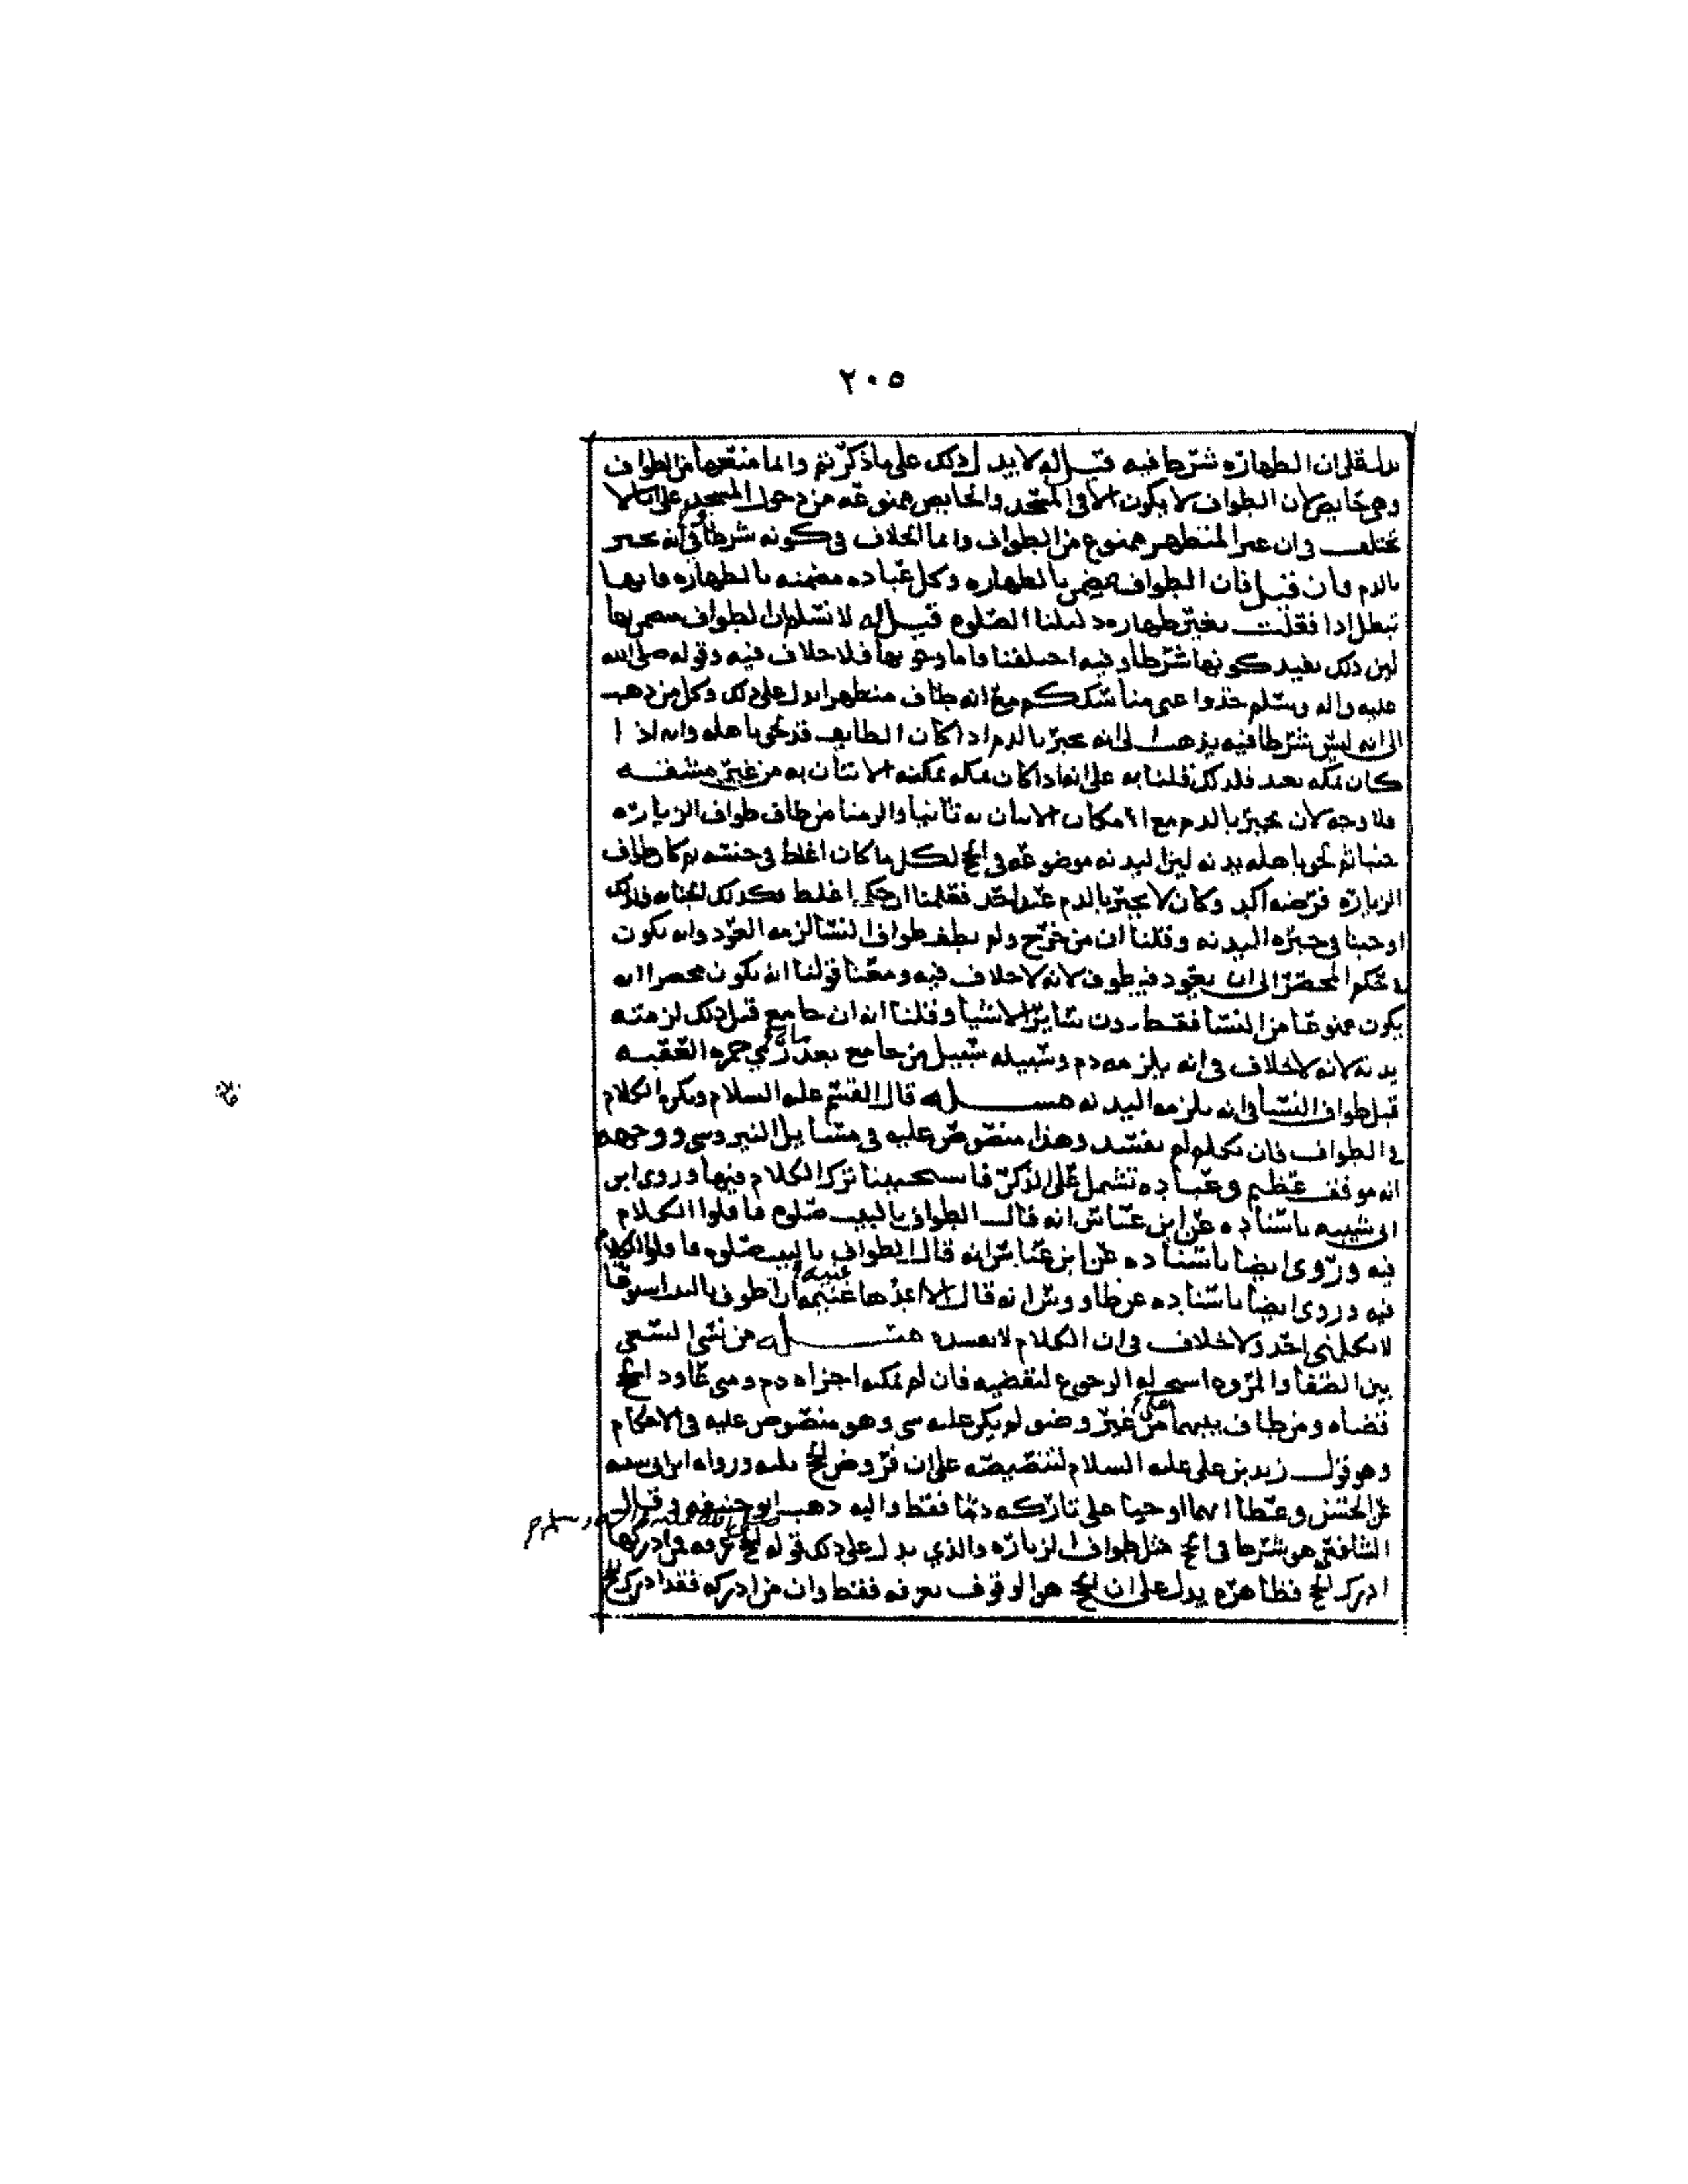 ٢٠٥
ان الطهاره شرطا فيه قيل له لا يدل ذلك على ما ذكرتم وانما منعها من الطواف
وهي حايض لان الطواف لا يكون الا في المسجد والحايض ممنوعه من دخول المسجد على انا لا
نختلف في ان غير المتطهر ممنوع من الطواف وانما الخلاف في كونه شرطا وفي انه يجبر
بالدم فان قيل فان الطواف بالطهاره وكل عباده مضمنه بالطهاره فانها
تبطل اذا فعلت بغير طهاره دليلنا الصلوه قيل له لا نسلم ان الطواف مضمن بها
لان ذلك يفيد كونها شرطا وفيه اختلفنا واما وجوبها فلا خلاف فيه وقوله صلى الله
عليه واله وسلم خذوا عني مناسككم مع انه طاف متطهرا يدل على ذلك وكل من ذهب
الى انه ليس شرطا فيه يذهب الى انه يجبر بالدم اذا كان الطايف قد لحق باهله وانه اذا
كان بمكه يعيد فلذلك قلنا به على انه اذا كان بمكه يمكنه الاتيان به من غير مشقه
فلا وجه لان يجبر بالدم مع امكان الاتيان به ثانيا والزمنا من طاف طواف الزياره
جنبا ثم لحق باهله بدنه لان البدنه موضوعه في الحج لكل ما كان اغلظ في جنسه ثم كان طواف
الزياره فرضه اكد وكان لا يجبر بالدم عند احد فعلمنا ان حكمه اغلظ وكذلك الجنابه فلذلك
اوجبنا في جبره البدنه وقلنا ان من خرج ولم يطف طواف النسا لزمه العود وانه يكون
في حكم المحصر الى ان يعود فيطوف لانه لا خلاف فيه ومعنا قولنا انه يكون محصرا انه
يكون ممنوعا من النسا فقط دون ساير الاشيا وقلنا انه ان جامع قبل ذلك لزمته
بدنه لانه لا خلاف في انه يلزمه دم وسبيله سبيل من جامع بعد ما رمى جمره العقبه
قبل طواف النسا في انه يلزمه البدنه مسئله قال القسم عليه السلام ويكره الكلام
في الطواف فان تكلم لم يفسد وهذا منصوص عليه في مسايل النيروسي ووجهه
انه موقف عظيم وعباده تشمل على الذكر فاستحببنا ترك الكلام فيها وروى ابن
ابي شيبه باسناده عن ابن عباس انه قال الطواف بالبيت صلوه فاقلوا الكلام
فيه وروى ايضا باسناده عن ابن عباس انه قال الطواف بالبيت صلوه فاقلوا الكلام
فيه وروى ايضا باسناده عن طاووس انه قال الا اعدها غنيمه ان اطوف بالبيت اسبوعا
لا يكلمني احد ولا خلاف في ان الكلام لا يفسده مسئله من نسي السعي
بين الصفا والمروه استحب له الرجوع لتقضيه فان لم يمكنه اجزاه دم ومتى عاود الحج
قضاه ومن طاف بينهما على غير وضو لم يكن عليه شي وهو منصوص عليه في الاحكام
وهو قول زيد بن علي عليه السلام لتنصيصه على ان فروض الحج ثلثه ورواه ابن ابي شيبه
عن الحسن وعطا انهما اوجبا على تاركه دما فقط واليه ذهب ابو حنيفه وقال
الشافعي هو شرط في الحج مثل طواف الزياره والذي يدل على ذلك قوله صلى الله عليه واله وسلم الحج عرفه فمن ادركها
ادرك الحج فظاهره يدل على ان الحج هو الوقوف بعرفه فقط وان من ادركه فقد ادرك الحج